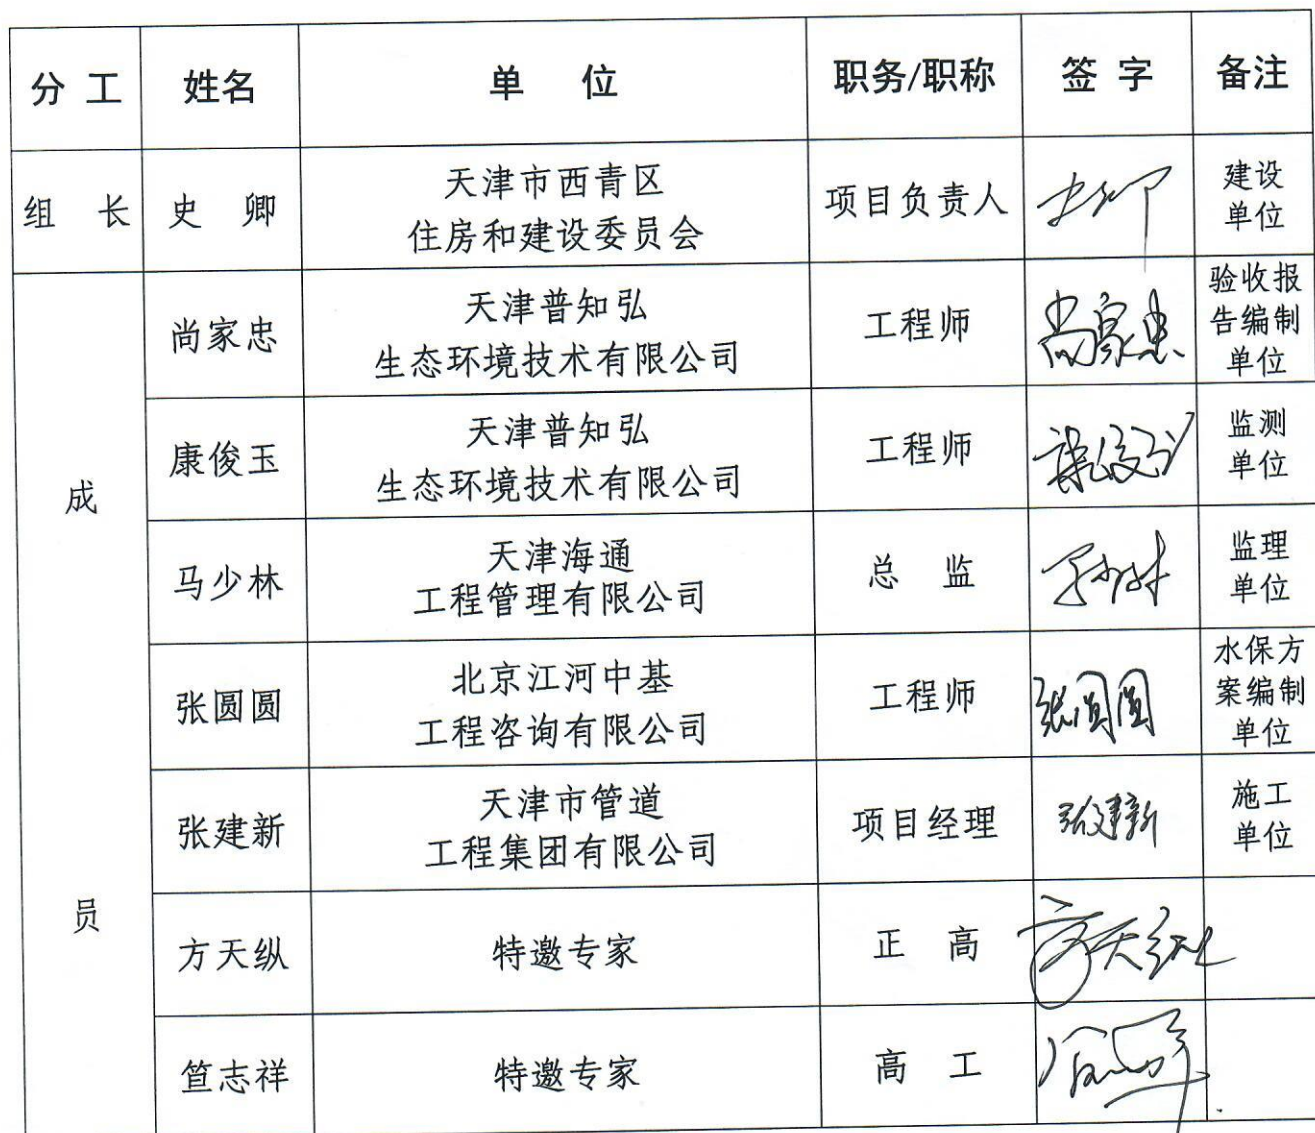 分 工 姓名 单 位 职务/职称 签 字 备注
组 长 史 卿 天津市西青区 住房和建设委员会 项目负责人 史卿 建设 单位
成 员
尚家忠 天津普知弘 生态环境技术有限公司 工程师 尚家忠 验收报 告编制 单位
康俊玉 天津普知弘 生态环境技术有限公司 工程师 监测 单位
马少林 天津海通 工程管理有限公司 总 监 马少林 监理 单位
张圆圆 北京江河中基 工程咨询有限公司 工程师 张圆圆 水保方 案编制 单位
张建新 天津市管道 工程集团有限公司 项目经理 张建新 施工 单位
方天纵 特邀专家 正 高 方天纵
笪志祥 特邀专家 高 工